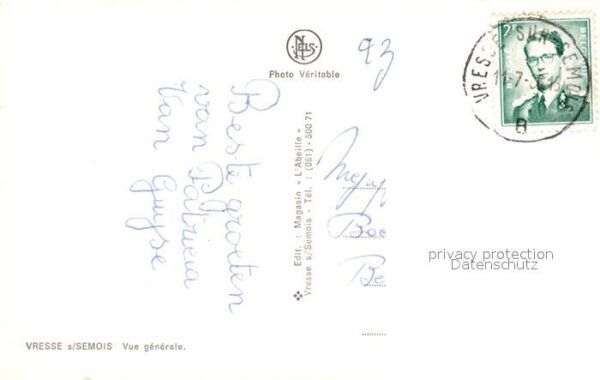 NELS
Photo Véritable
93
Beste groeten
van Patricia
Van
Edit. : Magasin « L'Abeille »
Vresse s/Semois - Tél. : (061) - 500 71
VRESSE-SUR-SEMOIS
B
BELG
Boe
Be
privacy protection
Datenschutz
VRESSE s/SEMOIS Vue générale.